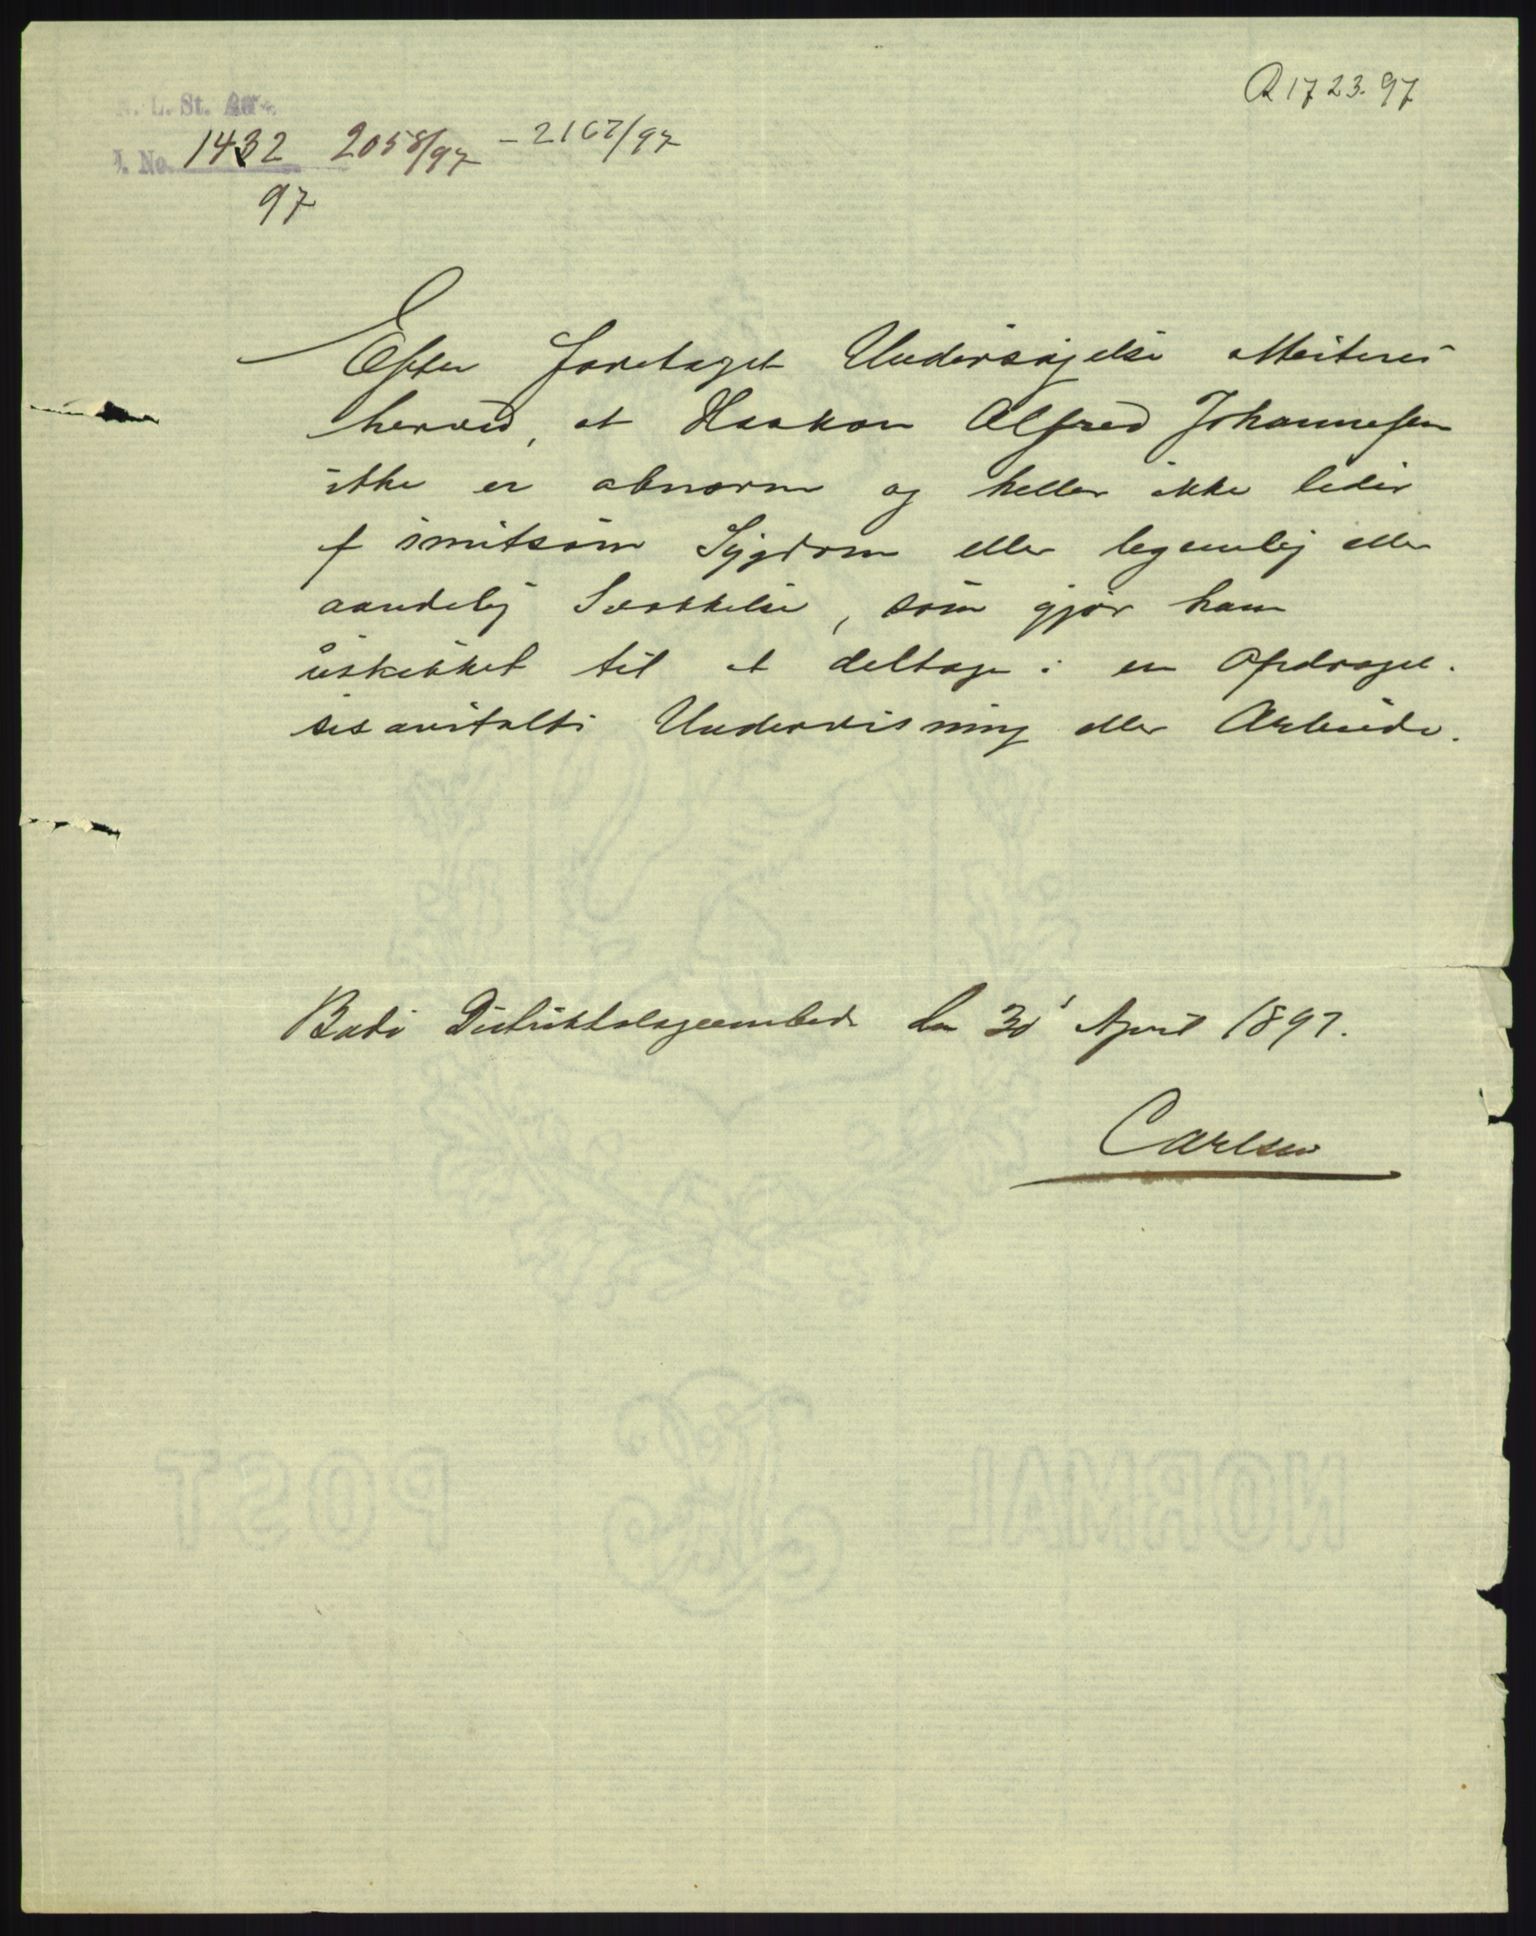 R 1723.97
N. L. St. Am.
J. No. 1432 2058/97 – 2167/97
97
Efter foretaget Undersøgelse attesteres
herved, at Haakon Alfred Johannesen
ikke er abnorm og heller ikke lider
af smitsom Sygdom eller legemlig eller
aandelig Svækkelse, som gjør ham
uskikket til at deltage i en Opdragel-
sesanstalts Undervisning eller Arbeide.
Bodø Distriktslægeembede den 30' April 1897.
Carlsen
NORMAL POST